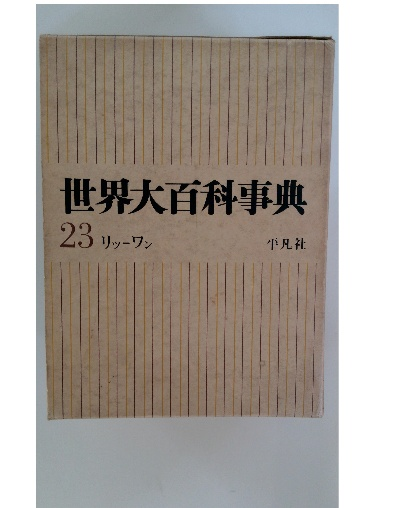 世界大百科事典
23 リッーワン 平凡社